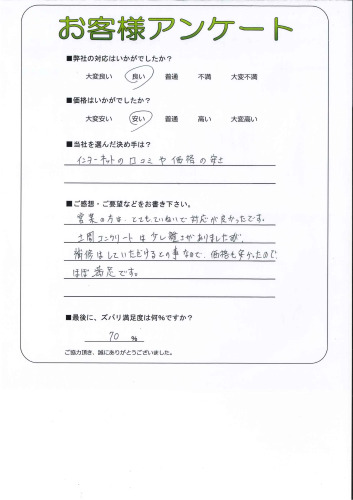 お客様アンケート
■弊社の対応はいかがでしたか？
大変良い 良い 普通 不満 大変不満
■価格はいかがでしたか？
大変安い 安い 普通 高い 大変高い
■当社を選んだ決め手は？
インターネットの口コミや価格の安さ
■ご感想・ご要望などをお書き下さい。
営業の方は、とてもていねいで対応が良かったです。
土間コンクリートは少し難とがありましたが、
補修はしていただけるとの事なので、価格も安かったので
ほぼ満足です。
■最後に、ズバリ満足度は何%ですか？
70 %
ご協力頂き、誠にありがとうございました。